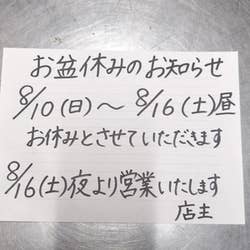 お盆休みのお知らせ
8/10(日)〜8/16(土)昼
お休みとさせていただきます
8/16(土)夜より営業いたします
店主